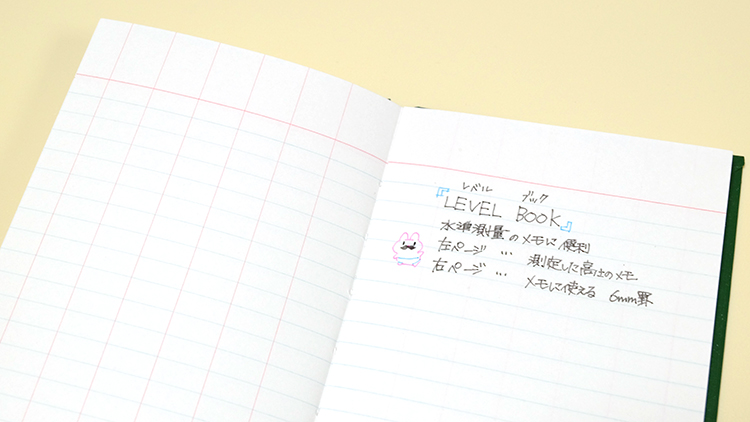 レベル ブック
『LEVEL BOOK』
水準測量のメモに便利
左ページ … 測定した高さのメモ
右ページ … メモに使える 6mm罫